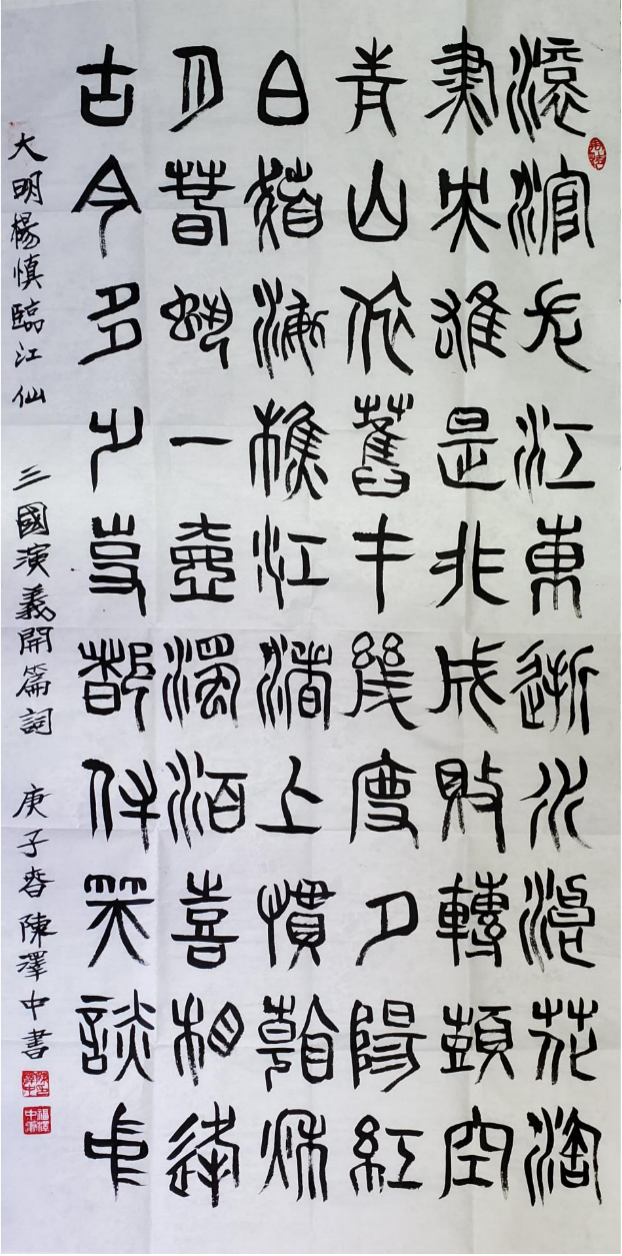 滾滾長江東逝水浪花淘
盡英雄是非成敗轉頭空
青山依舊在幾度夕陽紅
白髮漁樵江渚上慣看秋
月春風一壺濁酒喜相逢
古今多少事都付笑談中
大明楊慎臨江仙 三國演義開篇詞 庚子春陳澤中書